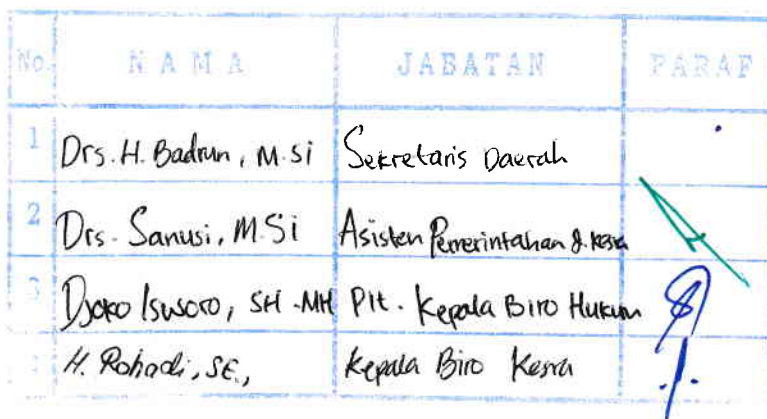 No. NAMA JABATAN PARAF
1 Drs. H. Badrun, M.Si Sekretaris Daerah
2 Drs. Sanusi, M.Si Asisten Pemerintahan & Kesra
3 Djoko Isworo, SH-MH Plt. Kepala Biro Hukum
H. Rohadi, SE., Kepala Biro Kesra